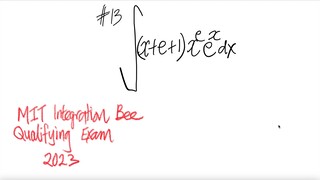 #13
∫(x+e+1)xᵉeˣdx
MIT Integration Bee
Qualifying Exam
2023